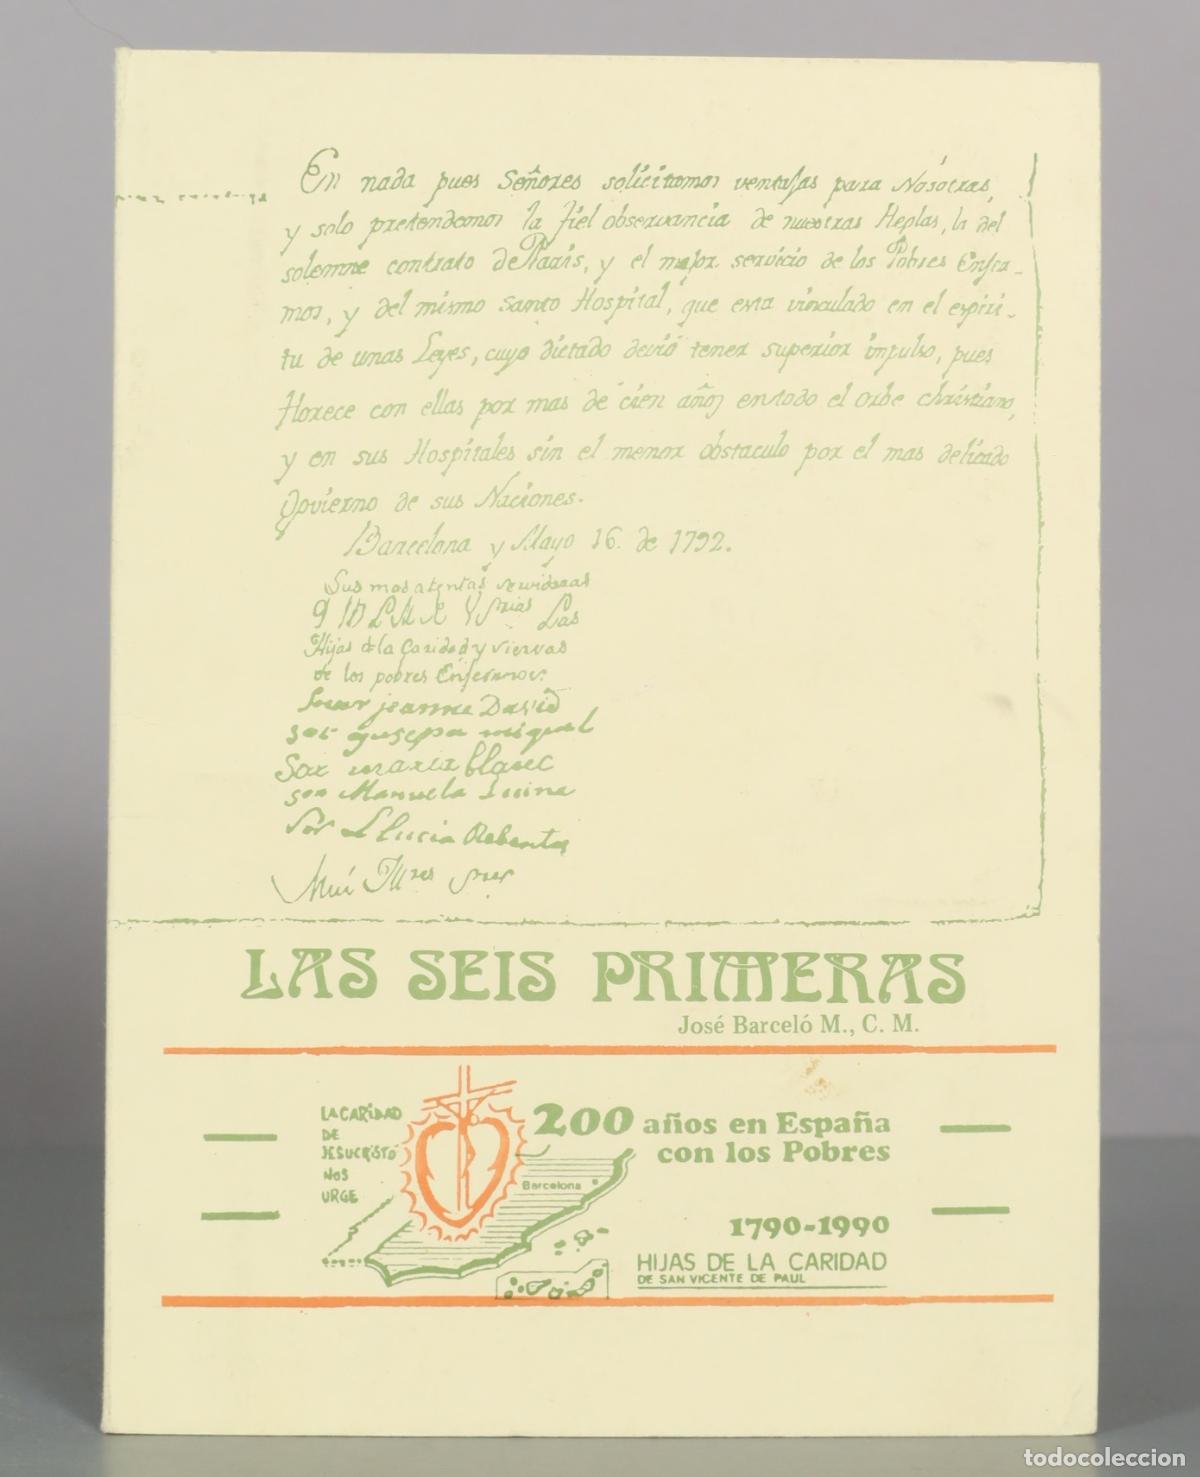 En nada pues Señores solicitamos ventajas para Nosotras,
y solo pretendemos la fiel observancia de nuestras Reglas, la del
solemne contrato de Paris, y el mejor servicio de los Pobres Enfer-
mos, y del mismo Santo Hospital, que esta vinculado en el espiri-
tu de unas Leyes, cuyo dictado devió tener superior impulso, pues
florece con ellas por mas de cien años en todo el orbe christiano,
y en sus Hospitales sin el menor obstaculo por el mas delicado
Govierno de sus Naciones.
Barcelona y Mayo 16. de 1792.
Sus mas atentas servidoras
Las
Hijas de la Caridad y siervas
de los pobres Enfermos.
Soeur jeanne David
sor jusepa miquel
Sor maria blanc
sor Manuela
Sor Llucia Reventos
Mui Illres
LAS SEIS PRIMERAS
José Barceló M., C. M.
LA CARIDAD
DE
JESUCRISTO
NOS
URGE
200 años en España
con los Pobres
Barcelona
1790-1990
HIJAS DE LA CARIDAD
DE SAN VICENTE DE PAUL
todocoleccion